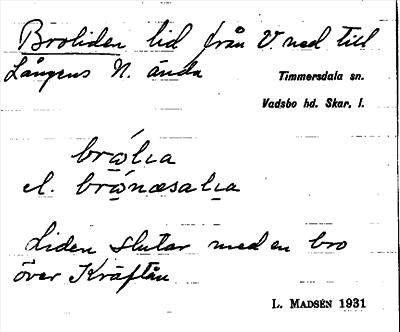 Broliden lid från V. ned till
Långens N. ända
Timmersdala sn.
Vadsbo hd. Skar. l.
brώ̣lıa
el. brώ̣næsalıa
Liden slutar med en bro
över Kräftån
L. MADSÉN 1931